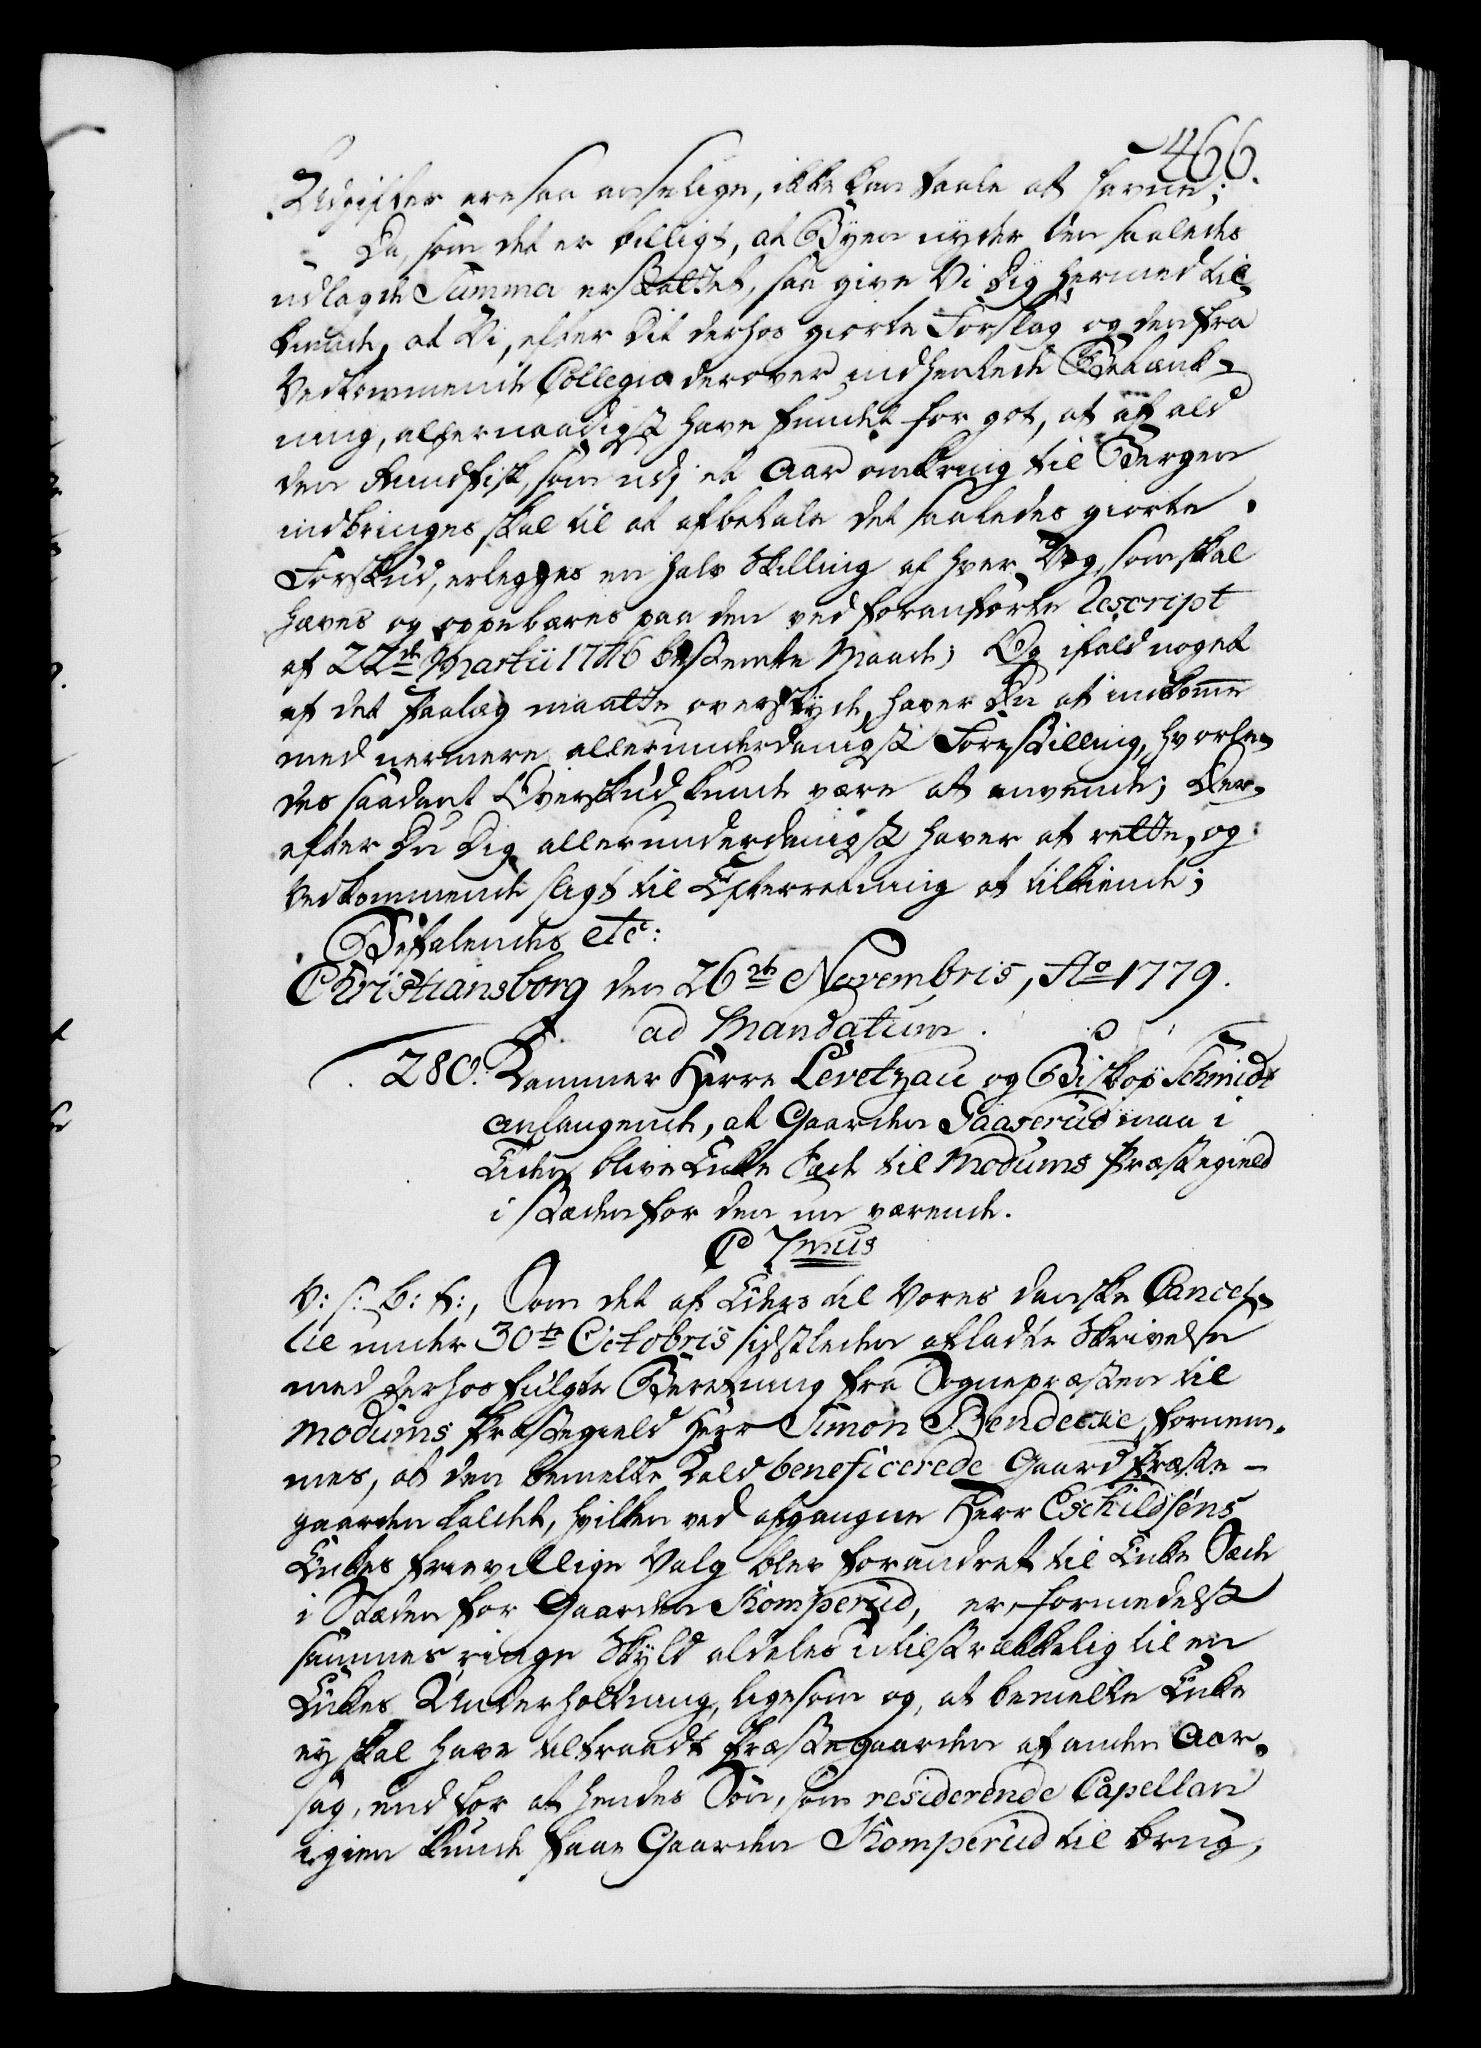 466.
Udgifter ere saa anselige, ikke kan taale at savne;
Da, som det er billigt, at Byen nyder den saaledes
udlagde Summa erstattet, saa give Vi Dig hermed til-
kiende, at Vi, efter Dit derhos giorte Forslag og den fra
Vedkommende Collegia derover indhentede Betænk-
ning, allernaadigst have fundet for got, at af ald
den Rundfisk, som udj et Aar omkring til Bergen
indbringes skal til at afbetale det saaledes giorte
Forskud, erlegges en halv Skilling af hver Vog, som skal
hæves og oppebæres paa den ved foranførte Rescript
af 22de Martii 1746 bestemte Maade; Og ifald noget
af det Paalæg maatte overskyde, haver Du at indkomme
med nermere allerunderdanigst Forestilling, hvorle-
des saadant Overskud kunde være at anvende; Der-
efter Du Dig allerunderdanigst haver at rette, og
Vedkommende sligt til Efterretning at tilkiende;
Befalendes etc:
Christiansborg den 26de Novembris, Ao 1779.
ad Mandatum.
280. Kammer Herre Levetzau og Biskop Schmidt
anlangende, at Gaarden Saaserud maa i
Tiden blive Enke Sæde til Modums Præstegield
i Stæden for den nu værende.
C 7mus
V: S: B: T:, Som det af Eders til Vores danske Cancel-
lie under 30te Octobris sidstleden afladte Skrivelse
med derhos fulgte Beretning fra Sognepræsten til
Modums Præstegield Herr Simon Bendeche, fornem-
mes, at den bemelte Kald beneficerede Gaard Præste-
gaarden kaldet, hvilken ved afgangne Herr Eschildsens
Enkes frievillige Valg blev forandret til Enke Sæde
i Stæden for Gaarden Komperud, er, formedelst
sammes ringe Skyld aldeles utilstrækkelig til en
Enkes Underholdning, ligesom og, at bemelte Enke
ey skal have tiltraadt Præstegaarden af anden Aar-
sag, end for at hendes Søn, som residerende Capellan
igien kunde faae Gaarden Komperud til brug,